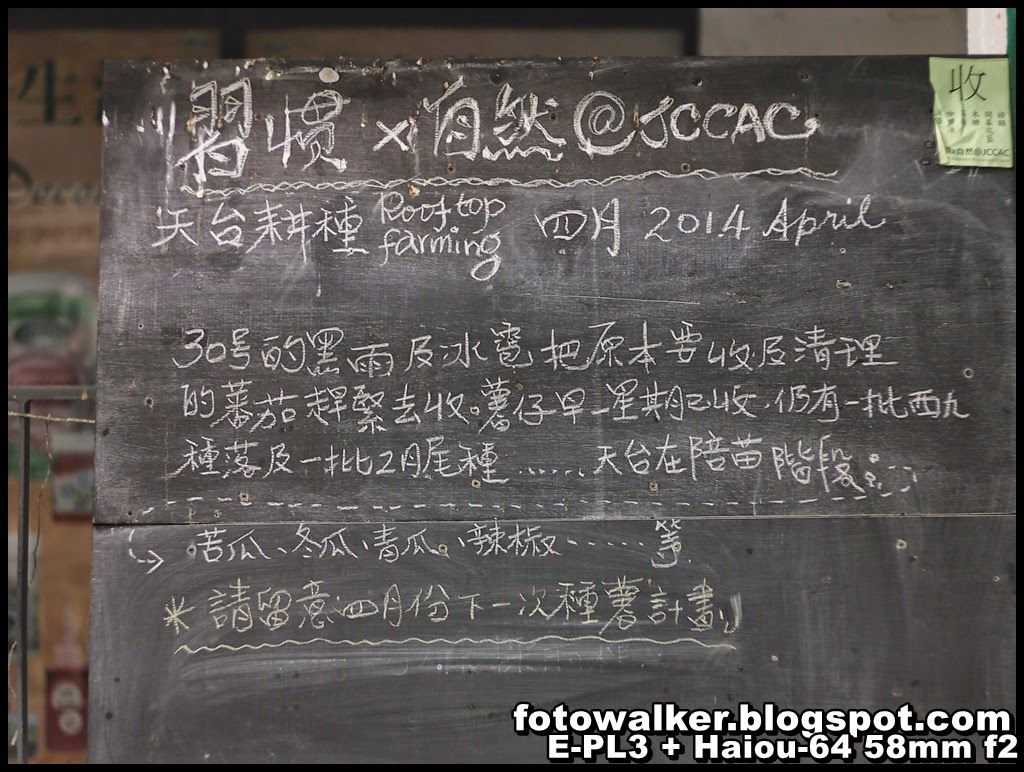 習慣 × 自然@JCCAC
天台耕種 Rooftop farming 四月 2014 April
30号的黑雨及冰雹把原本要收及清理
的蕃茄趕緊去收。薯仔早一星期已收,仍有一批西九
種落及一批2月尾種......天台在陪苗階段
苦瓜、冬瓜、青瓜、辣椒......等
*請留意四月份下一次種薯計劃
收
自然@JCCAC
生
Decor
fotowalker.blogspot.com
E-PL3 + Haiou-64 58mm f2